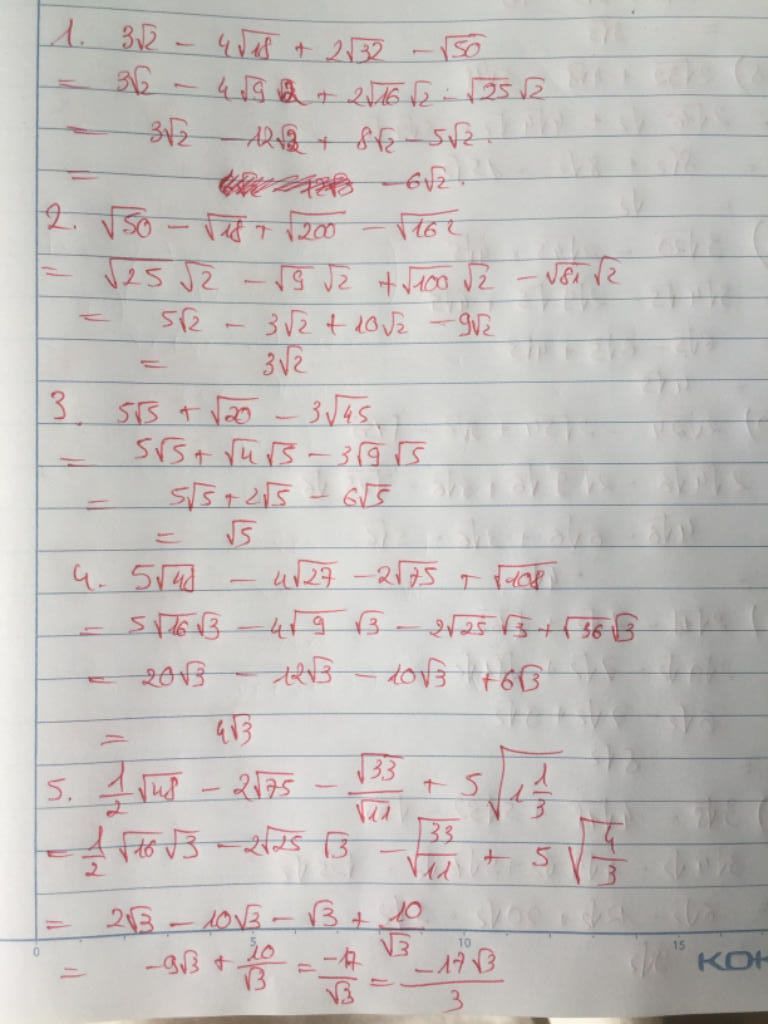 1. 3√2 − 4√18 + 2√32 − √50
= 3√2 − 4√9 √2 + 2√16 √2 − √25 √2
= 3√2 − 12√2 + 8√2 − 5√2.
= −6√2.
2. √50 − √18 + √200 − √162
= √25 √2 − √9 √2 + √100 √2 − √81 √2
= 5√2 − 3√2 + 10√2 − 9√2
= 3√2
3. 5√5 + √20 − 3√45
= 5√5 + √4 √5 − 3√9 √5
= 5√5 + 2√5 − 6√5
= √5
4. 5√48 − 4√27 − 2√75 + √108
= 5√16 √3 − 4√9 √3 − 2√25 √3 + √36 √3
= 20√3 − 12√3 − 10√3 + 6√3
= 4√3
5. 1/2 √48 − 2√75 − √33/√11 + 5√(1 1/3)
= 1/2 √16 √3 − 2√25 √3 − √(33/11) + 5√(4/3)
= 2√3 − 10√3 − √3 + 10/√3
= −9√3 + 10/√3 = −17/√3 = −17√3/3
0 5 10 15